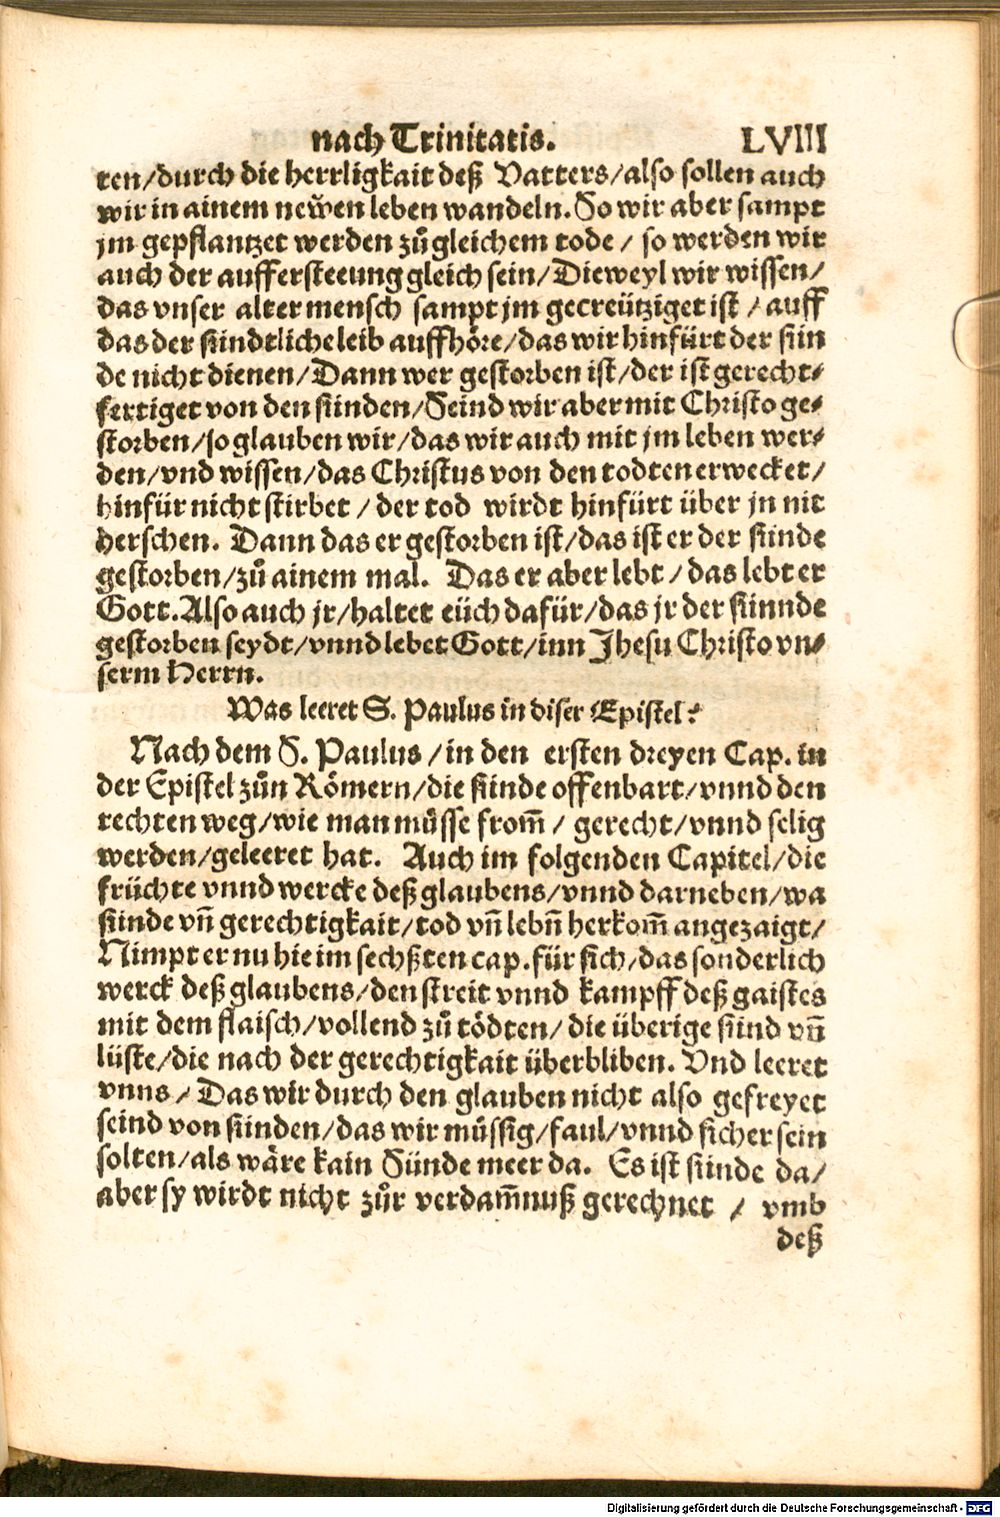 nach Trinitatis. LVIII
ten/durch die herrligkait deß Vatters/also sollen auch
wir in ainem neẅen leben wandeln. So wir aber sampt
jm gepflantzet werden zů gleichem tode / so werden wir
auch der auffersteeung gleich sein/Dieweyl wir wissen/
das vnser alter mensch sampt jm gecreütziget ist / auff
das der sündtliche leib auffhöre/das wir hinfürt der sün
de nicht dienen/Dann wer gestorben ist/der ist gerecht-
fertiget von den sünden/Seind wir aber mit Christo ge-
storben/so glauben wir/das wir auch mit jm leben wer-
den/vnd wissen/das Christus von den todten erwecket/
hinfür nicht stirbet / der tod wirdt hinfürt über jn nit
herschen. Dann das er gestorben ist/das ist er der sünde
gestorben/zů ainem mal. Das er aber lebt / das lebt er
Gott. Also auch jr/haltet eüch dafür/das jr der sünnde
gestorben seydt/vnnd lebet Gott/inn Jhesu Christo vn-
serm Herrn.
Was leeret S. Paulus in diser Epistel?
Nach dem S. Paulus / in den ersten dreyen Cap. in
der Epistel zůn Römern/die sünde offenbart/vnnd den
rechten weg/wie man müsse from̄ / gerecht/vnnd selig
werden/geleeret hat. Auch im folgenden Capitel/die
früchte vnnd wercke deß glaubens/vnnd darneben/wa
sünde vn̄ gerechtigkait/tod vn̄ lebn̄ herkom̄ angezaigt/
Nimpt er nu hie im sechßten cap. für sich/das sonderlich
werck deß glaubens/den streit vnnd kampff deß gaistes
mit dem flaisch/vollend zů tödten/die überige sünd vn̄
lüste/die nach der gerechtigkait überbliben. Vnd leeret
vnns / Das wir durch den glauben nicht also gefreyet
seind von sünden/das wir müssig/faul/vnnd sicher sein
solten/als wäre kain Sünde meer da. Es ist sünde da/
aber sy wirdt nicht zůr verdam̄nuß gerechnet / vmb
deß
Digitalisierung gefördert durch die Deutsche Forschungsgemeinschaft - DFG